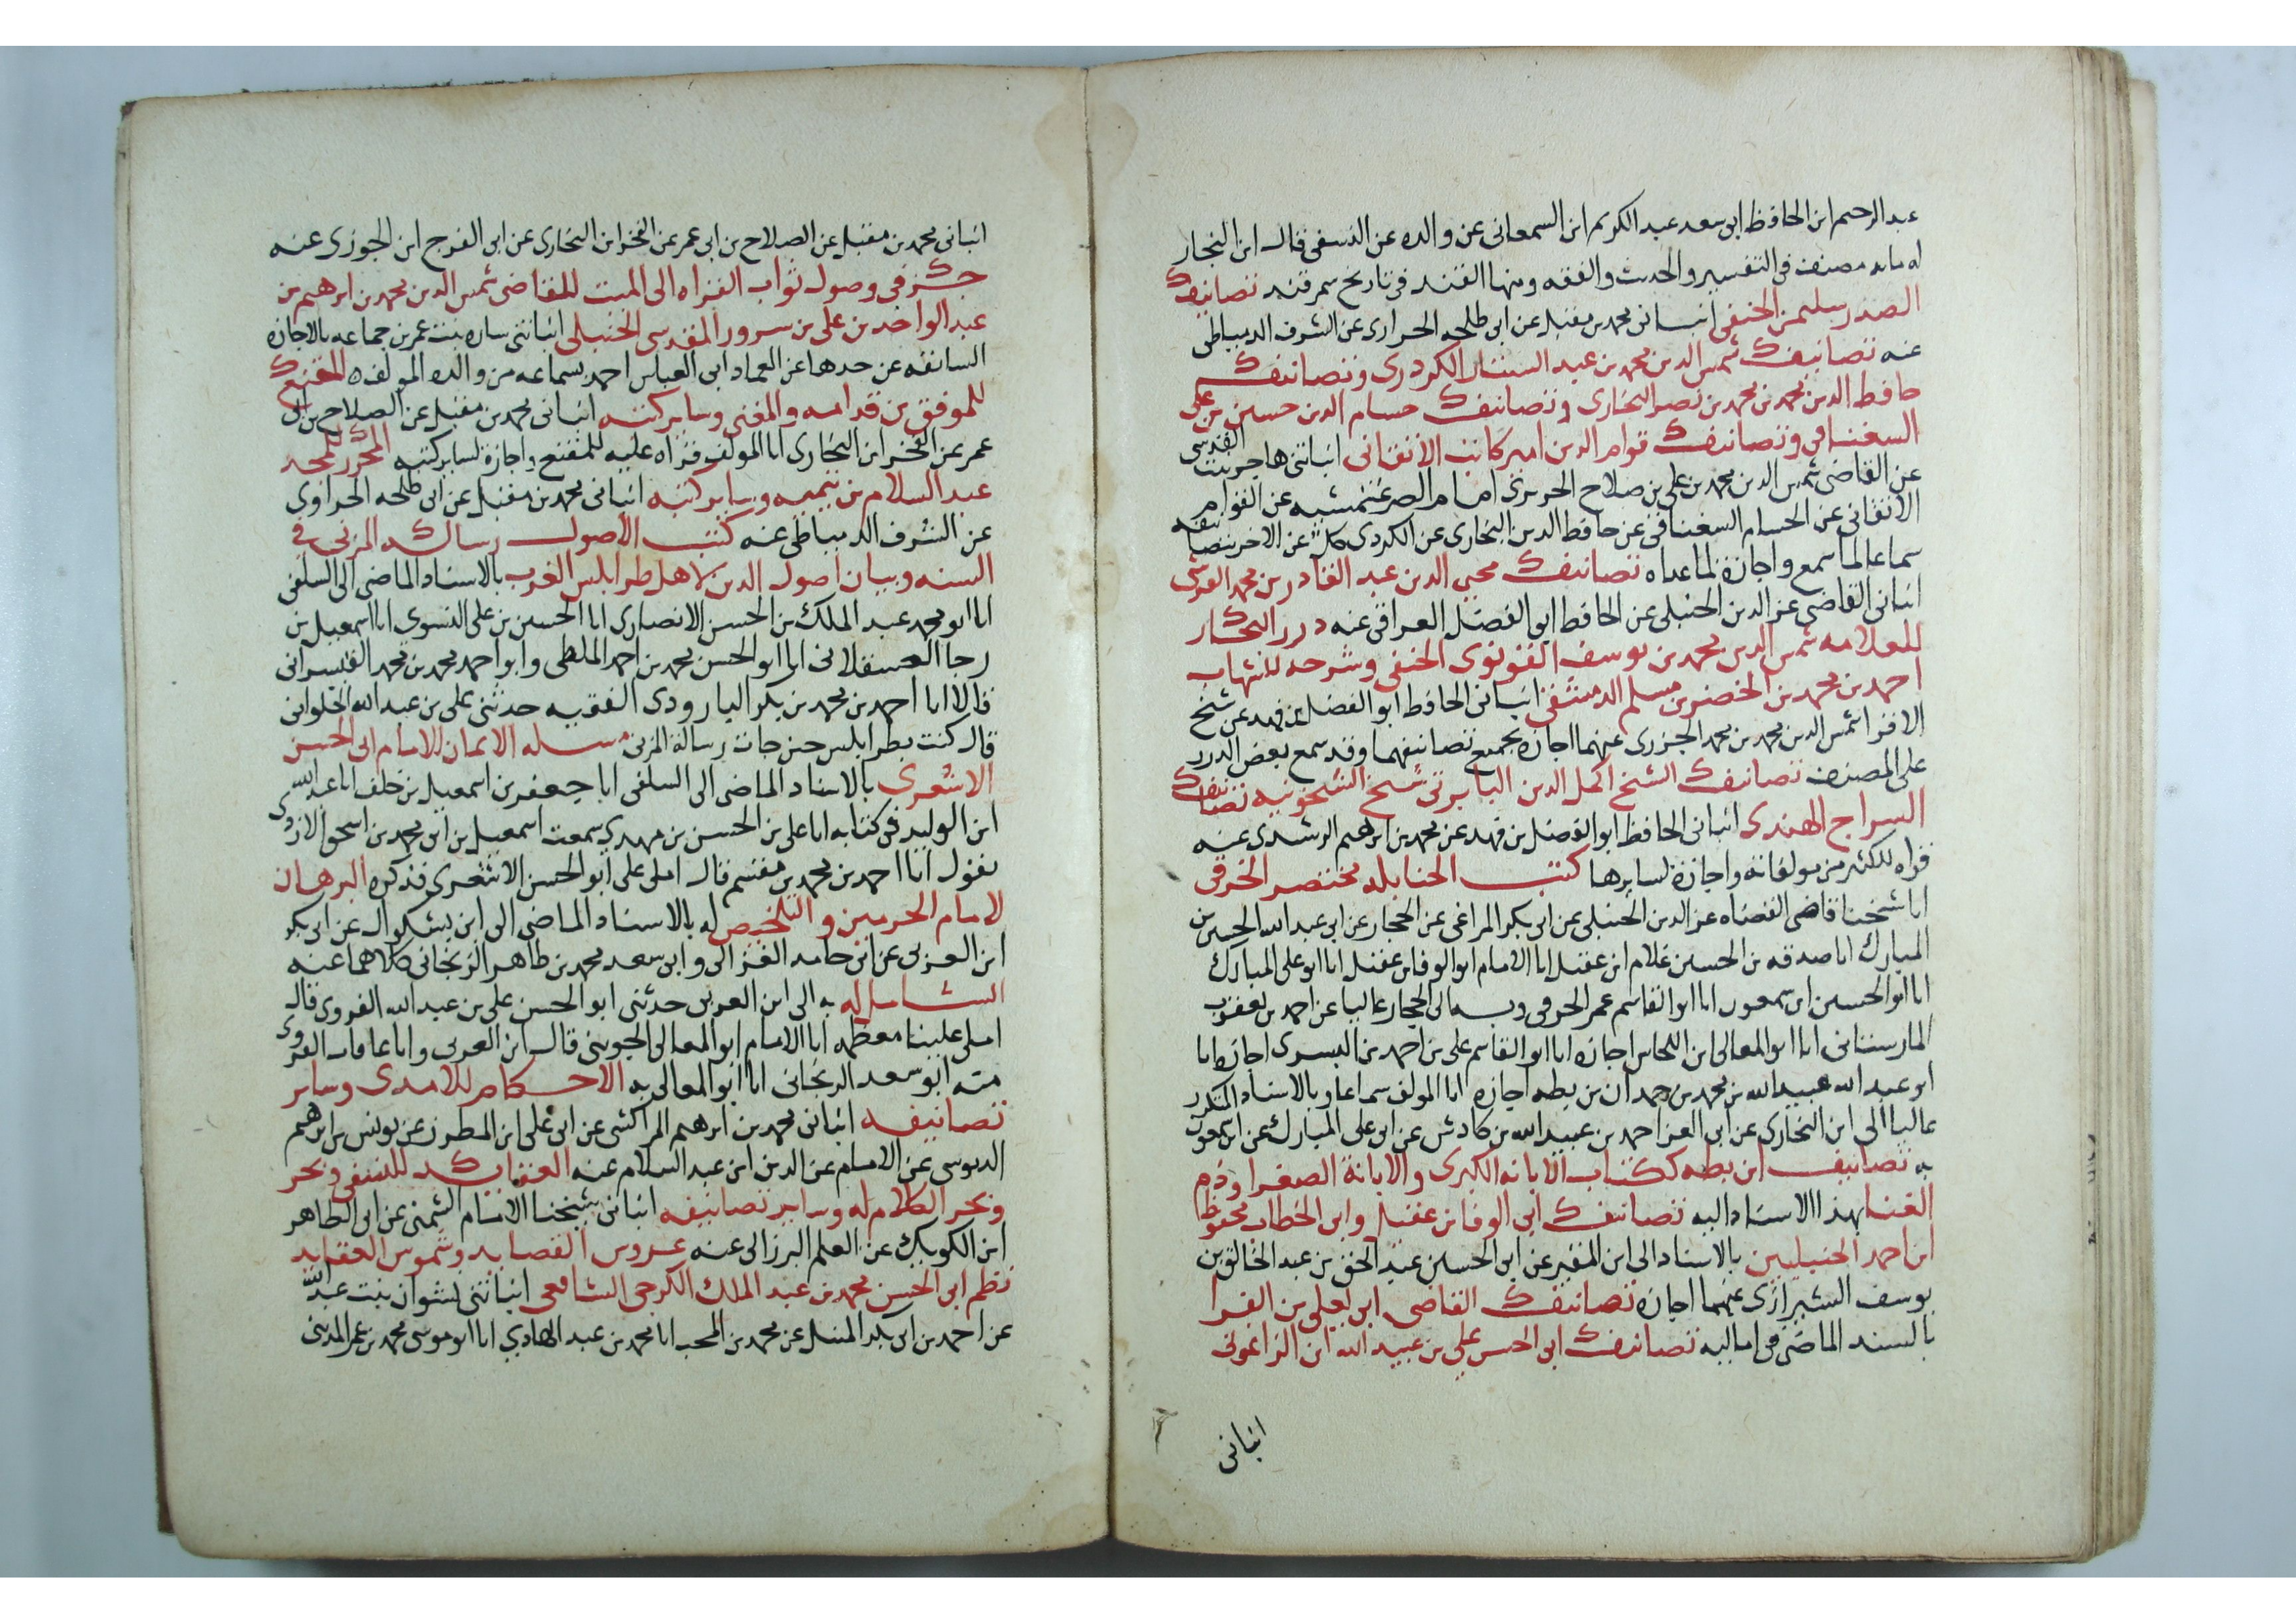 عبد الرحيم ابن الحافظ ابى سعد عبد الكريم ابن السمعانى عن والده عن النسفى قال ابن النجار
له مايه مصنف فى التفسير والحديث والفقه ومنها القند فى تاريخ سمرقند تصانيف
الصدر سليمن الحنفى انبانى محمد بن مقبل عن ابى طلحه الحراوى عن الشرف الدمياطى
عنه تصانيف شمس الدين محمد بن عبد الستار الكردرى وتصانيف
حافظ الدين محمد بن محمد بن نصر البخارى وتصانيف حسام الدين حسين بن على
السغناقى وتصانيف قوام الدين امير كاتب الاتقانى انباتنى هاجر بنت القدسى
عن القاضى شمس الدين محمد بن على بن صلاح الحريرى امام الصرغتمشيه عن القوام
الاتقانى عن الحسام السغناقى عن حافظ الدين البخارى عن الكردى كل عن الاخر بتصانيفه
سماعا لما سمع واجازة لما عداه تصانيف محيى الدين عبد القادر بن محمد القرشى
انبانى القاضى عز الدين الحنبلى عن الحافظ ابو الفضل العراقى عنه درر البحار
للعلامه شمس الدين محمد بن يوسف القونوى الحنفى وشرحه للشهاب
احمد بن محمد بن الخضر بن مسلم الدمشقى انبانى الحافظ ابو الفضل بن فهد عن شيخ
الاقرا شمس الدين محمد بن محمد الجزرى عنهما اجازه بجميع تصانيفهما وقد سمع بعض الدرر
على المصنف تصانيف الشيخ اكمل الدين البابرتى شيخ الشيخونيه تصانيف
السراج الهندى انبانى الحافظ ابو الفضل بن فهد عن محمد بن ابرهيم الرشدى عنه
قراه لكثير من مولفاته واجازة لسايرها كتب الحنابله مختصر الخرقى
انا شيخنا قاضى القضاه عز الدين الحنبلى عن ابى بكر المراغى عن الحجار عن ابى عبد الله الحسين بن
المبارك انا صدقه بن الحسين غلام ابن عقيل انا الامام ابو الوفا بن عقيل انا ابو على المبارك
انا ابو الحسين ابن سمعون انا ابو القاسم عمر الخرقى وبه الى الحجار عاليا عن احمد بن يعقوب
المارستانى انا ابو المعالى ابن النحاس اجازه انا ابو القاسم على بن احمد بن البسرى اجازه انا
ابو عبد الله عبيد الله بن محمد بن حمدان بن بطه اجازه انا المولف سماعا وبالاسناد المتكرر
عاليا الى ابن البخارى عن ابى العز احمد بن عبيد الله بن كادش عن ابى على المبارك عن ابن سمعون
به تصانيف ابن بطه ككتاب الابانه الكبرى والابانة الصغرا وذم
الغنا بهذا الاسناد اليه تصانيف ابى الوفا بن عقيل وابى الخطاب محفوظ
ابن احمد الحنبليين بالاسناد الى ابن المقير عن ابى الحسين عبد الحق بن عبد الخالق بن
يوسف الشيرازى عنهما اجازه تصانيف القاضى ابى يعلى بن الفرا
بالسند الماضى فى اماليه تصانيف ابى الحسن على بن عبيد الله ابن الزاغونى
انبانى
انبانى محمد بن مقبل عن الصلاح بن ابى عمر عن الفخر ابن البخارى عن ابى الفرج ابن الجوزى عنه
جزء فى وصول ثواب القراه الى الميت للقاضى شمس الدين محمد بن ابرهيم بن
عبد الواحد بن على بن سرور المقدسى الحنبلى انباتنى ساره بنت عمر بن جماعه بالاجازه
السابقه عن جدها عن العماد ابى العباس احمد بسماعه من والده المولف ه المقنع
للموفق بن قدامه والمغنى وساير كتبه انبانى محمد بن مقبل عن الصلاح بن ابى
عمر عن الفخر ابن البخارى انا المولف قراه عليه للمقنع واجازة لساير كتبه المحرر للمجد
عبد السلام بن تيميه وساير كتبه انبانى محمد بن مقبل عن ابى طلحه الحراوى
عن الشرف الدمياطى عنه كتب الاصول رساله المزنى فى
السنه وبيان اصول الدين لاهل طرابلس الغرب بالاسناد الماضى الى السلفى
انا ابو محمد عبد الملك بن الحسن الانصارى انا الحسين بن على النسوى انا اسمعيل بن
رجا العسقلانى انا ابو الحسن محمد بن احمد الملطى وابو احمد محمد بن محمد القيسرانى
قالا انا احمد بن محمد بن بكر البارودى الفقيه حدثنى على بن عبد الله الحلوانى
قال كنت بطرابلس حين جات رسالة المزنى مسله الايمان للامام ابى الحسن
الاشعرى بالاسناد الماضى الى السلفى انا جعفر بن اسمعيل بن خلف انا عبد الله
ابن الوليد فى كتابه انا على بن الحسن بن مهدى سمعت اسمعيل بن ابى محمد بن اسحق الازدى
يقول انا احمد بن محمد بن مقسم قال املى على ابو الحسن الاشعرى فذكره البرهان
لامام الحرمين والتلخيص له بالاسناد الماضى الى ابن بشكوال عن ابى بكر
ابن العربى عن ابى حامد الغزالى وابى سعد محمد بن طاهر الزنجانى كلاهما عنه
الشامل له به الى ابن العربى حدثنى ابو الحسن على بن عبد الله القروى قال
املى علينا معظمه انا الامام ابو المعالى الجوينى قال ابن العربى وانا عافات القروى
منه ابو سعد الزنجانى انا ابو المعالى به الاحكام للامدى وساير
تصانيفه انبانى محمد بن ابرهيم المراكشى عن ابى على ابن المطرز عن يونس بن ابرهيم
الدبوسى عن الامام عز الدين ابن عبد السلام عنه العقايد للنسفى وبحر
وبحر الكلام له وساير تصانيفه انبانى شيخنا الامام الشمنى عن ابى الطاهر
ابن الكويك عن العلم البرزالى عنه عروس القصايد وشموس العقايد
نظم ابى الحسن محمد بن عبد الملك الكرجى الشافعى انباتنى نشوان بنت عبد الله
عن احمد بن ابى بكر عن محمد بن المحب انا محمد بن عبد الهادي انا ابو موسى محمد بن عمر المدينى